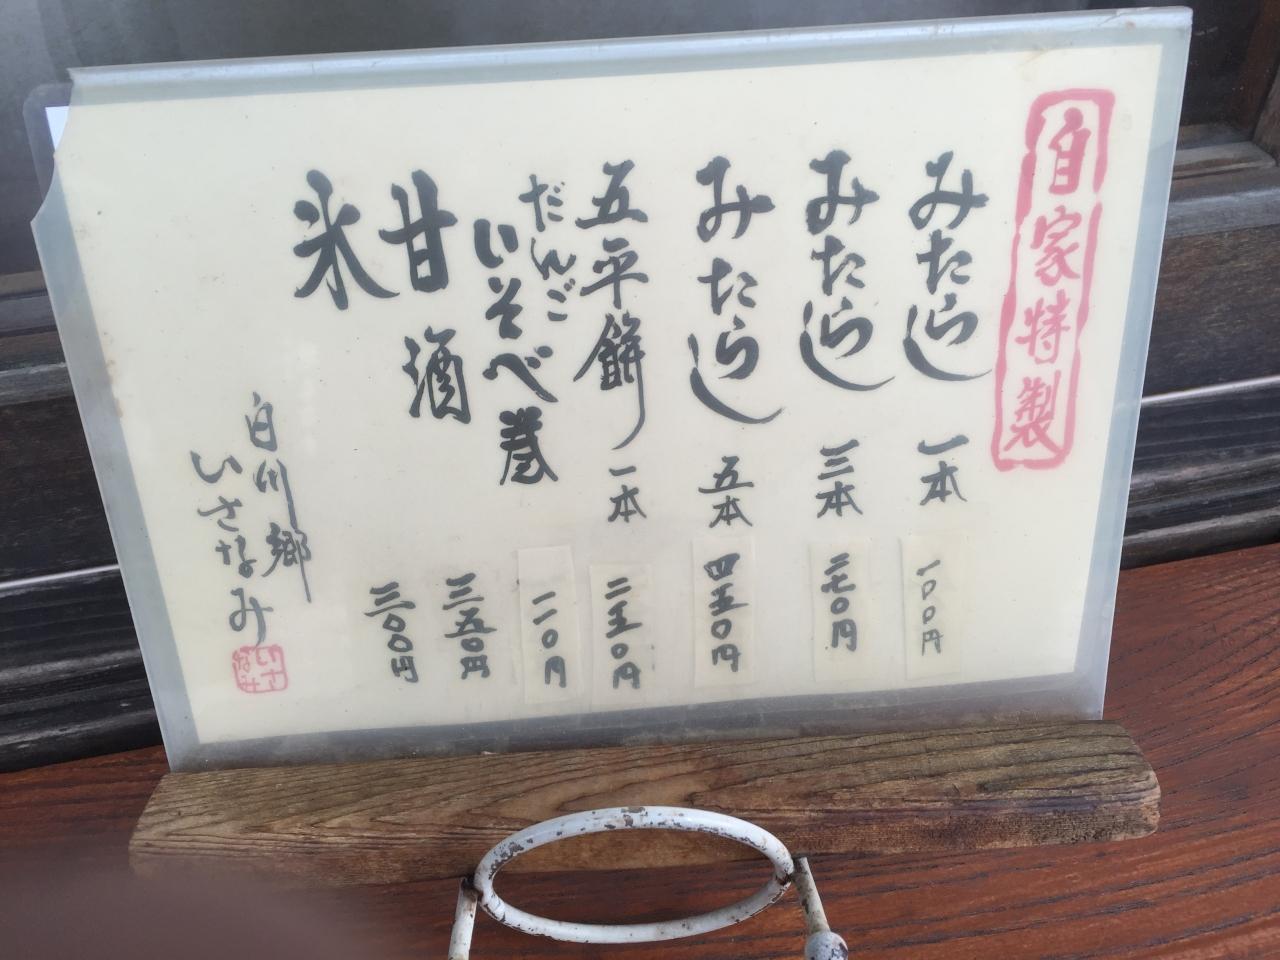 自家特製
みたらし 一本 一〇〇円
みたらし 三本 二七〇円
みたらし 五本 四五〇円
五平餅 一本 二五〇円
だんご いそべ巻 一一〇円
甘酒 三五〇円
氷 三〇〇円
白川郷
いさなみ
いさなみ